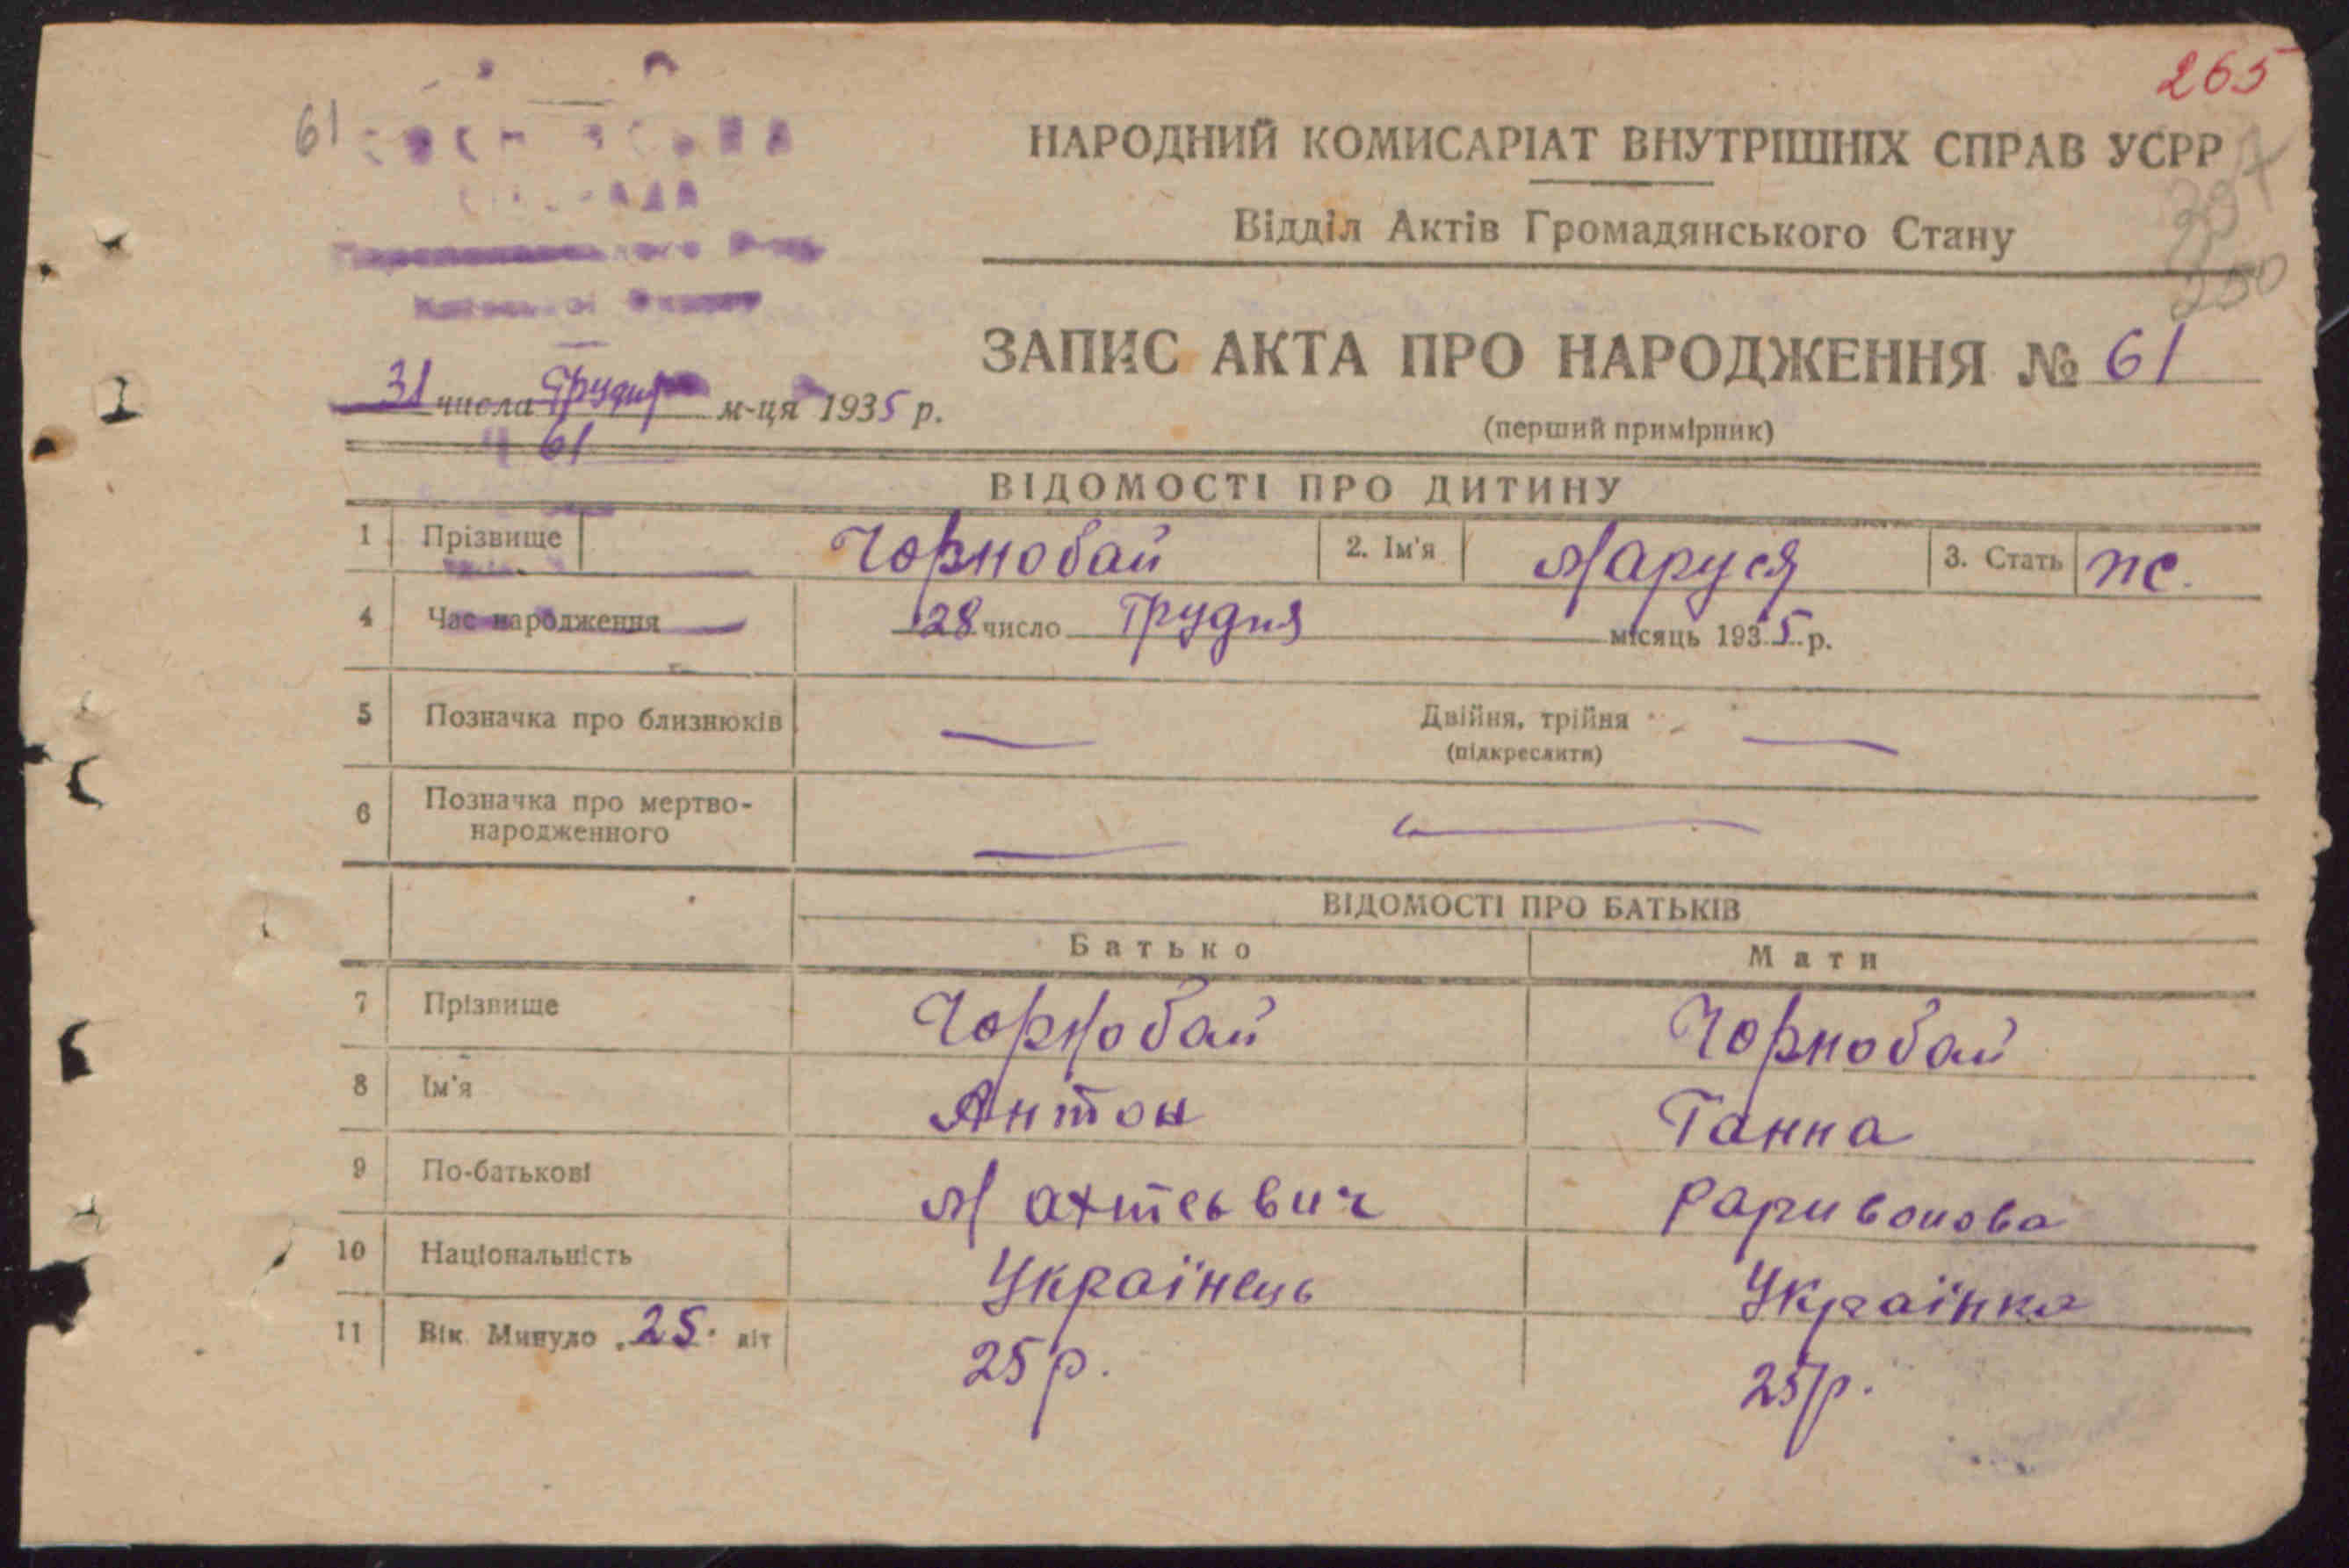 265
61
НАРОДНИЙ КОМИСАРІАТ ВНУТРІШНІХ СПРАВ УСРР
Відділ Актів Громадянського Стану
250
ЗАПИС АКТА ПРО НАРОДЖЕННЯ № 61
31 числа Грудня м-ця 1935 р.
(перший примірник)
61
ВІДОМОСТІ ПРО ДИТИНУ
1 Прізвище Чорнобай 2. Ім'я Маруся 3. Стать ж.
4 Час народження 28 число Грудня місяць 1935 р.
5 Позначка про близнюків — Двійня, трійня —
(підкреслити)
6 Позначка про мертво-
народженного — —
ВІДОМОСТІ ПРО БАТЬКІВ
Батько Мати
7 Прізвище Чорнобай Чорнобай
8 Ім'я Антон Ганна
9 По-батькові Раривонова
10 Національність Українець Українка
11 Вік Минуло 25 літ 25 р. 25 р.